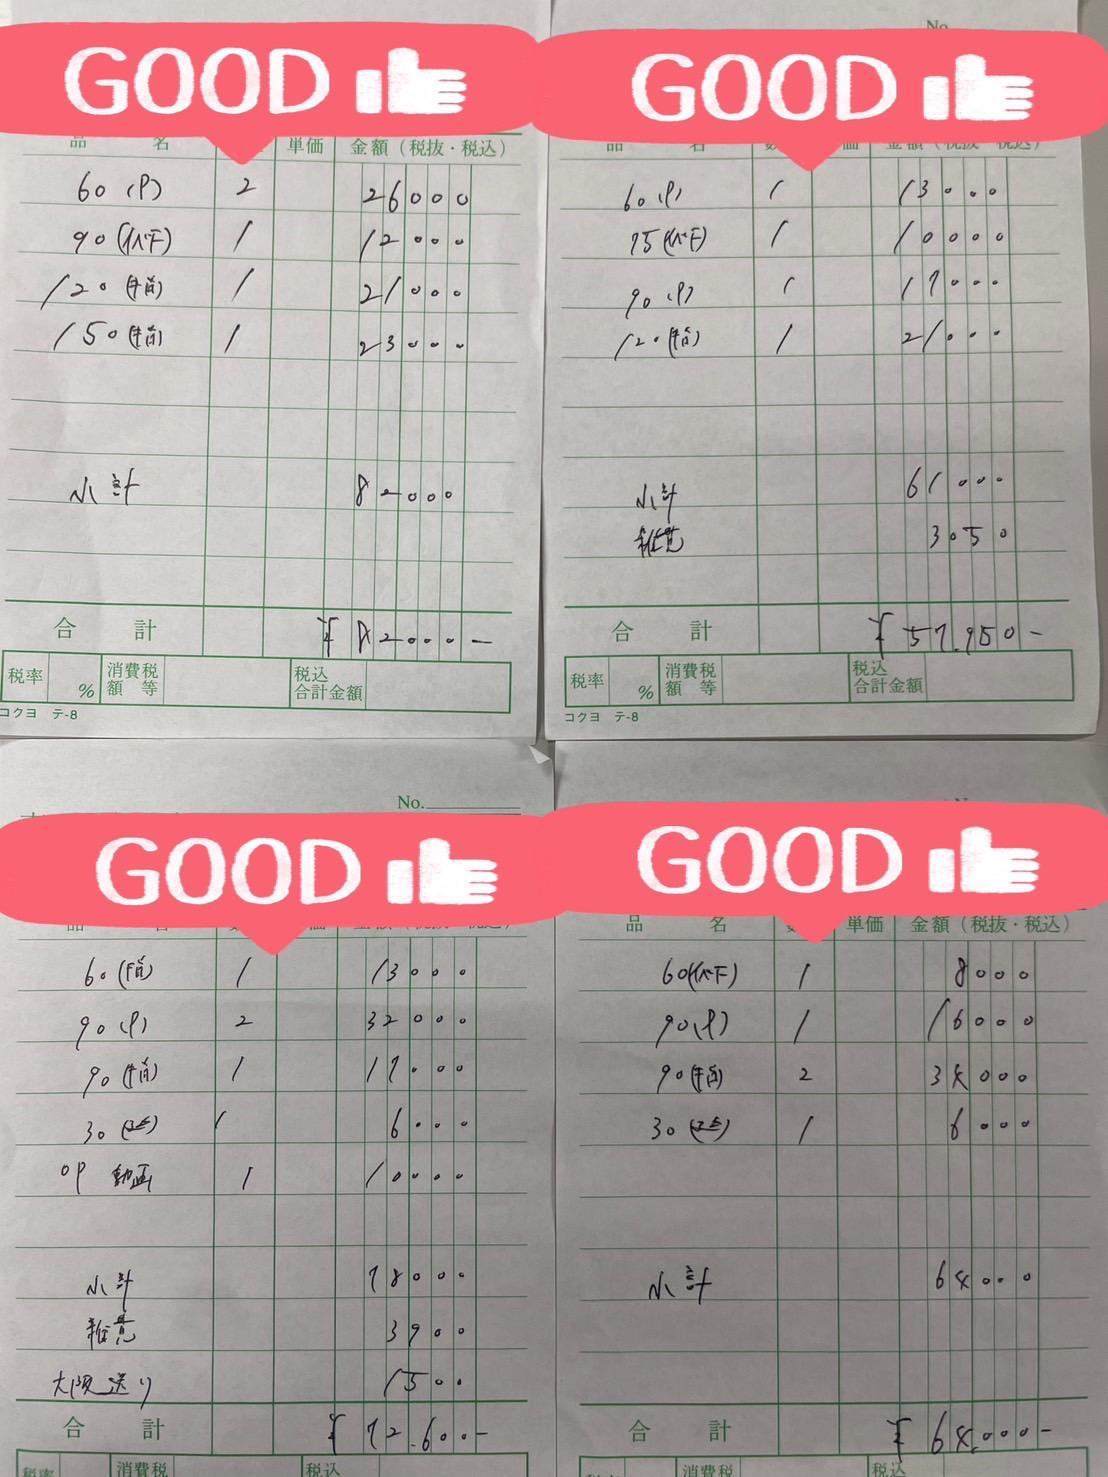 GOOD
品 名 単価 金額(税抜・税込)
60 (P) 2 26000
90 (イベ下) 1 12000
120 (指) 1 21000
150 (指) 1 23000
小計 82000
合計 ¥82000-
税率 % 消費税額等 税込合計金額
コクヨ テ-8
No.
GOOD
品 名 数 価 金額(税抜・税込)
60 (P) 1 13000
75 (イベ下) 1 10000
90 (P) 1 17000
120 (指) 1 21000
小計 61000
雑費 3050
合計 ¥57,950-
税率 % 消費税額等 税込合計金額
コクヨ テ-8
No.
GOOD
品 名 数 価 金額(税抜・税込)
60 (指) 1 13000
90 (P) 2 32000
90 (指) 1 17000
30 1 6000
OP 動画 1 10000
小計 78000
雑費 3900
大阪送り 1500
合計 ¥72,600-
税率 消費税 税込
GOOD
品 名 数 単価 金額(税抜・税込)
60 (イベ下) 1 8000
90 (P) 1 16000
90 (指) 2 34000
30 1 6000
小計 64000
合計 ¥64,000-
消費税 税込